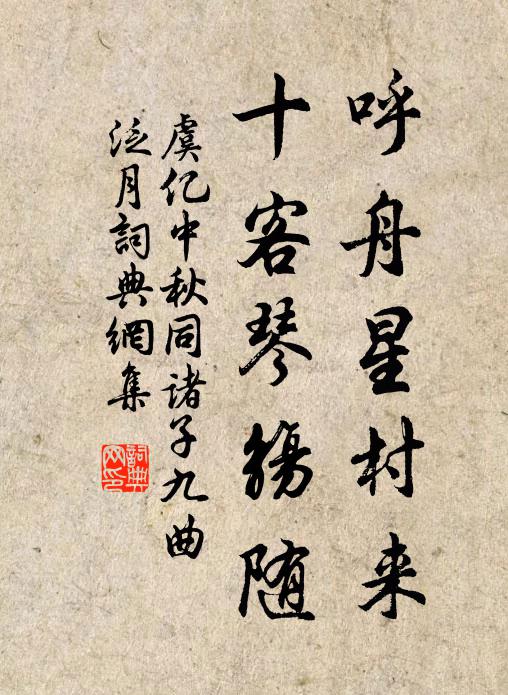 呼舟星村来
十客琴觴随
虞亿中秋同諸子九曲
泛月詞典網集
詞典网印